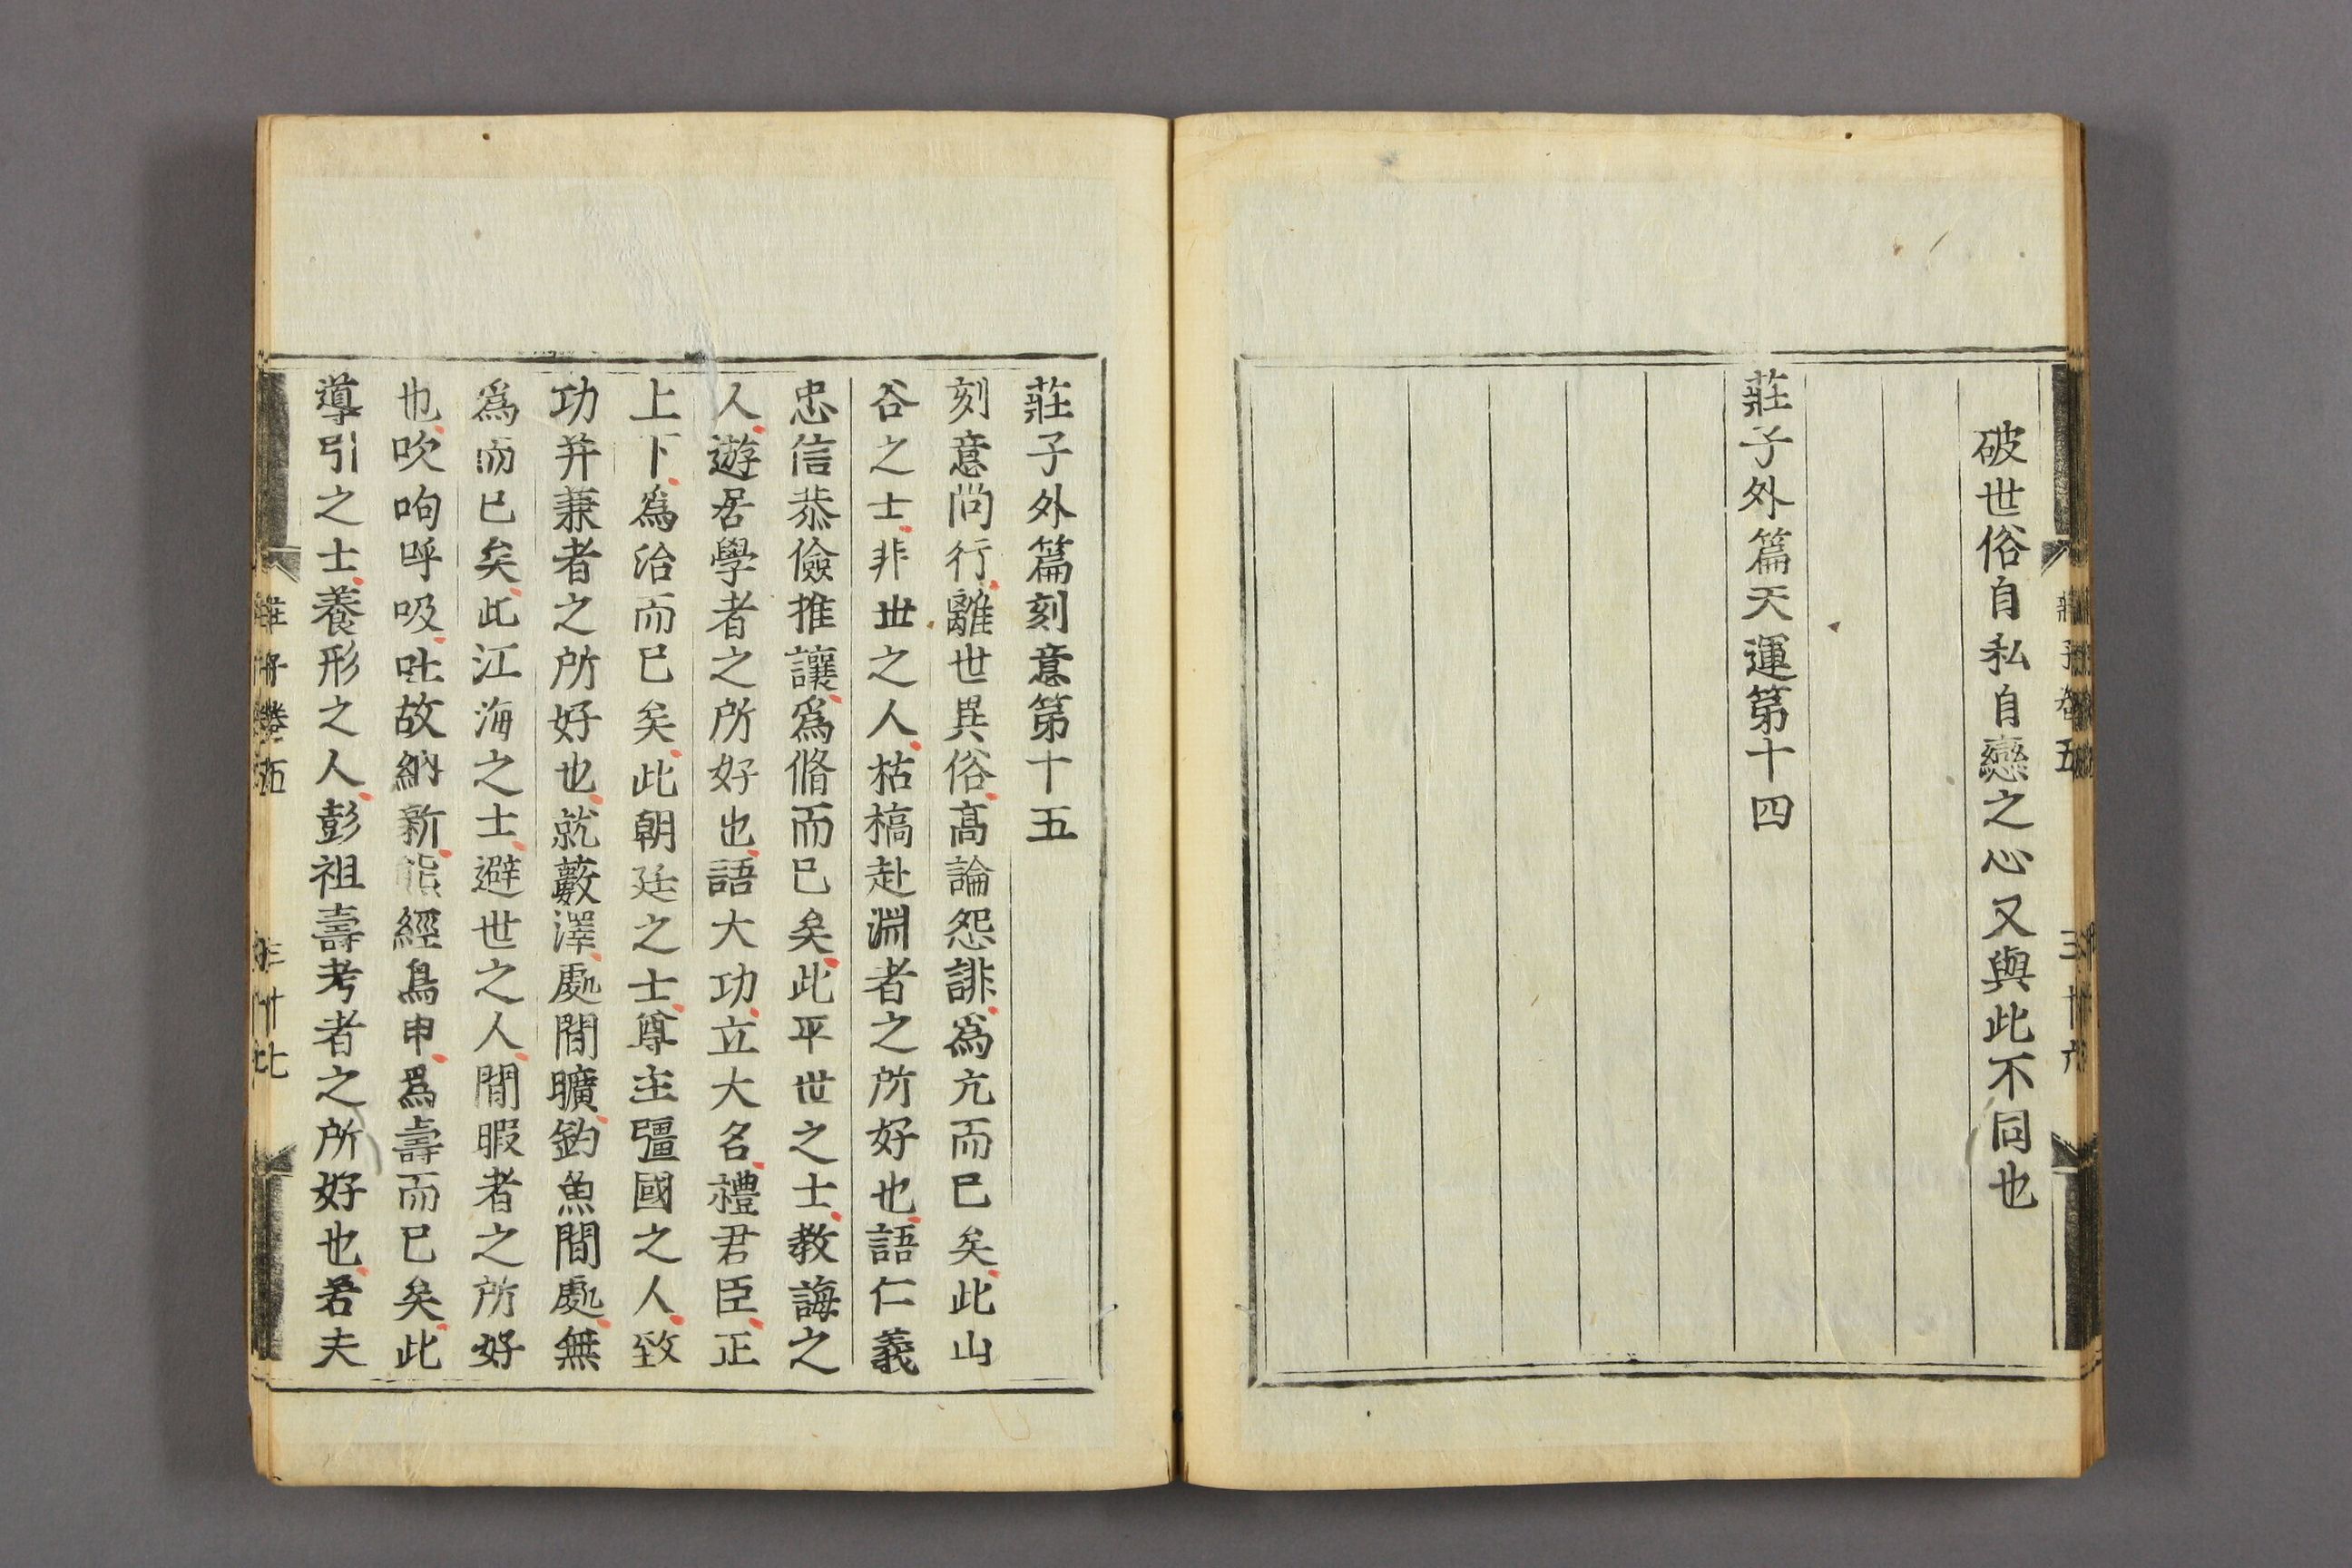 破世俗自私自戀之心又與此不同也
莊子外篇天運第十四
莊子外篇刻意第十五
刻意尚行離世異俗高論怨誹爲亢而已矣此山
谷之士非世之人枯槁赴淵者之所好也語仁義
忠信恭儉推讓爲脩而已矣此平世之士教誨之
人遊居學者之所好也語大功立大名禮君臣正
上下爲治而已矣此朝廷之士尊主彊國之人致
功并兼者之所好也就藪澤處閒曠釣魚閒處無
爲而已矣此江海之士避世之人閒暇者之所好
也吹呴呼吸吐故納新熊經鳥申爲壽而已矣此
導引之士養形之人彭祖壽考者之所好也若夫